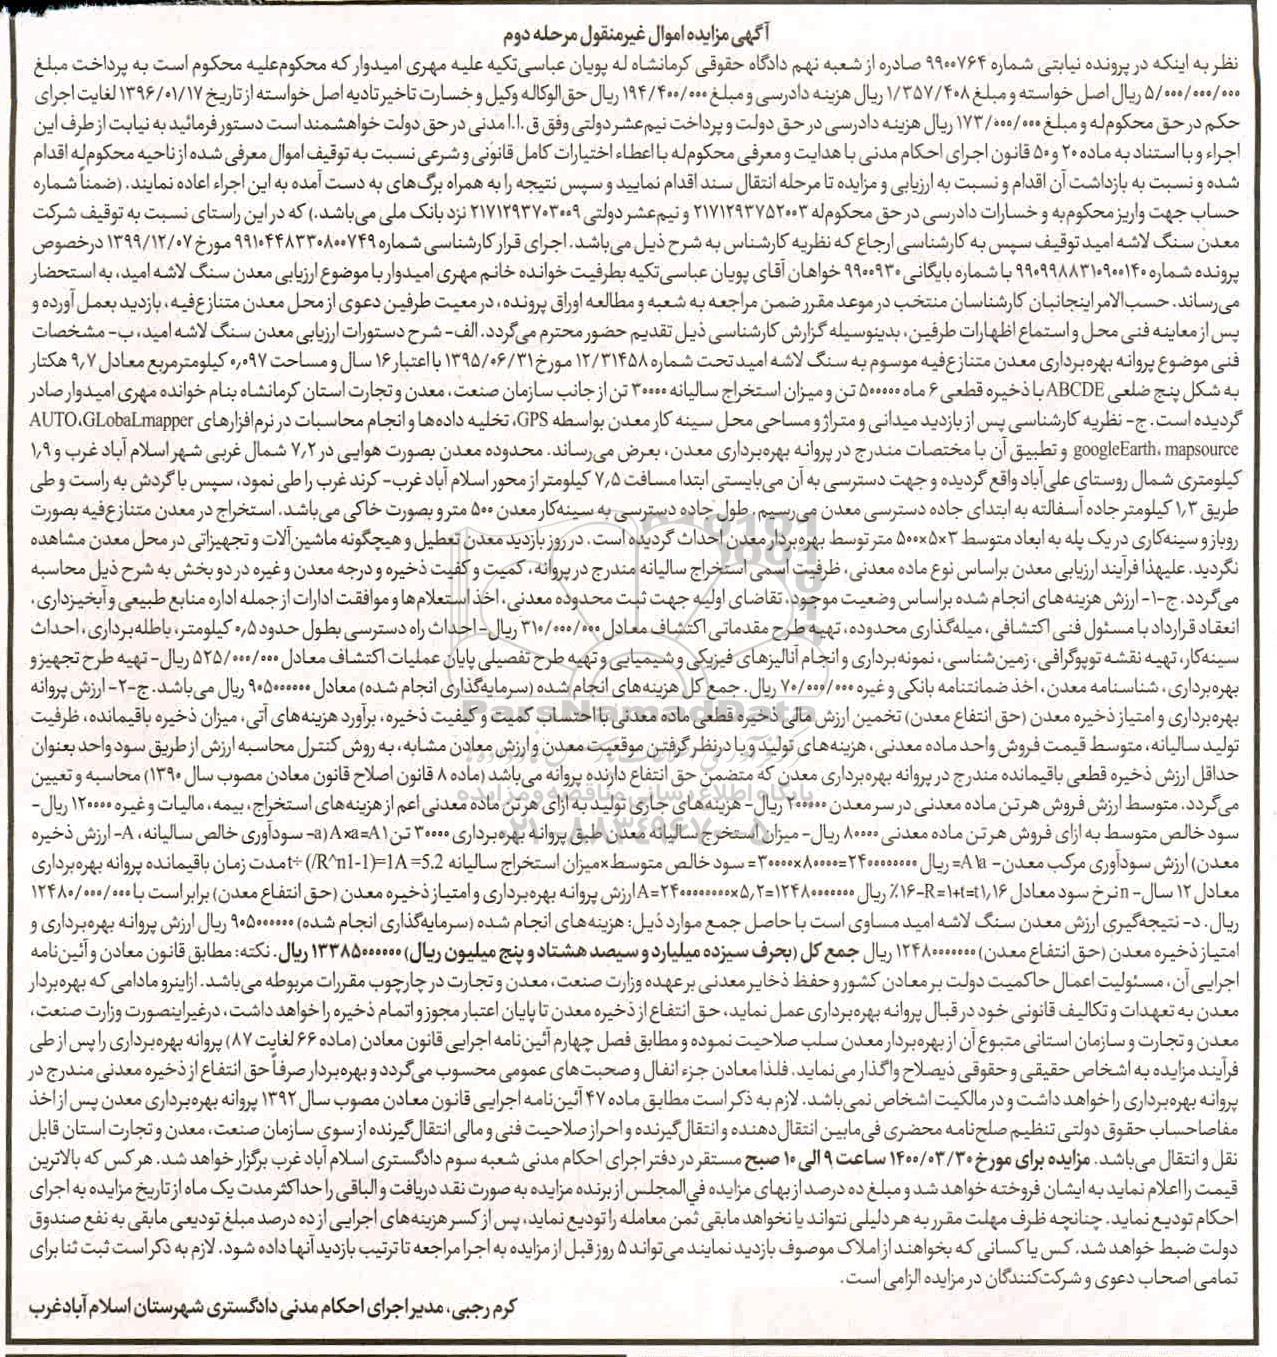 آگهی مزایده اموال غیرمنقول مرحله دوم
نظر به اینکه در پرونده نیابتی شماره ۹۹۰۰۷۶۴ صادره از شعبه نهم دادگاه حقوقی کرمانشاه له پویان عباسی‌تکیه علیه مهری امیدوار که محکوم‌علیه محکوم است به پرداخت مبلغ
۵/۰۰۰/۰۰۰/۰۰۰ ریال اصل خواسته و مبلغ ۱/۳۵۷/۴۰۸ ریال هزینه دادرسی و مبلغ ۱۹۴/۴۰۰/۰۰۰ ریال حق‌الوکاله وکیل و خسارت تاخیر تادیه اصل خواسته از تاریخ ۱۳۹۶/۰۱/۱۷ لغایت اجرای
حکم در حق محکوم‌له و مبلغ ۱۷۳/۰۰۰/۰۰۰ ریال هزینه دادرسی در حق دولت و پرداخت نیم‌عشر دولتی وفق ق.ا.ا مدنی در حق دولت خواهشمند است دستور فرمائید به نیابت از طرف این
اجراء و با استناد به ماده ۲۰ و ۵۰ قانون اجرای احکام مدنی با هدایت و معرفی محکوم‌له با اعطاء اختیارات کامل قانونی و شرعی نسبت به توقیف اموال معرفی شده از ناحیه محکوم‌له اقدام
شده و نسبت به بازداشت آن اقدام و نسبت به ارزیابی و مزایده تا مرحله انتقال سند اقدام نمایید و سپس نتیجه را به همراه برگ‌های به دست آمده به این اجراء اعاده نمایند. (ضمناً شماره
حساب جهت واریز محکوم‌به و خسارات دادرسی در حق محکوم‌له ۲۱۷۱۲۹۳۷۵۲۰۰۳ و نیم‌عشر دولتی ۲۱۷۱۲۹۳۷۰۳۰۰۹ نزد بانک ملی می‌باشد.) که در این راستای نسبت به توقیف شرکت
معدن سنگ لاشه امید توقیف سپس به کارشناسی ارجاع که نظریه کارشناس به شرح ذیل می‌باشد. اجرای قرار کارشناسی شماره ۹۹۱۰۴۴۸۳۳۰۸۰۰۷۴۹ مورخ ۱۳۹۹/۱۲/۰۷ درخصوص
پرونده شماره ۹۹۰۹۹۸۸۳۱۰۹۰۰۱۴۰ با شماره بایگانی ۹۹۰۰۹۳۰ خواهان آقای پویان عباسی‌تکیه بطرفیت خوانده خانم مهری امیدوار با موضوع ارزیابی معدن سنگ لاشه امید، به استحضار
می‌رساند. حسب‌الامر اینجانبان کارشناسان منتخب در موعد مقرر ضمن مراجعه به شعبه و مطالعه اوراق پرونده، در معیت طرفین دعوی از محل معدن متنازع‌فیه، بازدید بعمل آورده و
پس از معاینه فنی محل و استماع اظهارات طرفین، بدینوسیله گزارش کارشناسی ذیل تقدیم حضور محترم می‌گردد. الف- شرح دستورات ارزیابی معدن سنگ لاشه امید، ب- مشخصات
فنی موضوع پروانه بهره‌برداری معدن متنازع‌فیه موسوم به سنگ لاشه امید تحت شماره ۱۲/۳۱۴۵۸ مورخ ۱۳۹۵/۰۶/۳۱ با اعتبار ۱۶ سال و مساحت ۰٫۰۹۷ کیلومترمربع معادل ۹٫۷ هکتار
به شکل پنج ضلعی ABCDE با ذخیره قطعی ۶ ماه ۵۰۰۰۰۰ تن و میزان استخراج سالیانه ۳۰۰۰۰ تن از جانب سازمان صنعت، معدن و تجارت استان کرمانشاه بنام خوانده مهری امیدوار صادر
گردیده است. ج- نظریه کارشناسی پس از بازدید میدانی و متراژ و مساحی محل سینه کار معدن بواسطه GPS، تخلیه داده‌ها و انجام محاسبات در نرم‌افزارهای AUTO،GLobaLmapper
googleEarth، mapsource و تطبیق آن با مختصات مندرج در پروانه بهره‌برداری معدن، بعرض می‌رساند. محدوده معدن بصورت هوایی در ۷٫۲ شمال غربی شهر اسلام آباد غرب و ۱٫۹
کیلومتری شمال روستای علی‌آباد واقع گردیده و جهت دسترسی به آن می‌بایستی ابتدا مسافت ۷٫۵ کیلومتر از محور اسلام آباد غرب- کرند غرب را طی نمود، سپس با گردش به راست و طی
طریق ۱٫۳ کیلومتر جاده آسفالته به ابتدای جاده دسترسی معدن می‌رسیم. طول جاده دسترسی به سینه‌کار معدن ۵۰۰ متر و بصورت خاکی می‌باشد. استخراج در معدن متنازع‌فیه بصورت
روباز و سینه‌کاری در یک پله به ابعاد متوسط ۳×۵×۵۰۰ متر توسط بهره‌بردار معدن احداث گردیده است. در روز بازدید معدن تعطیل و هیچگونه ماشین‌آلات و تجهیزاتی در محل معدن مشاهده
نگردید. علیهذا فرآیند ارزیابی معدن براساس نوع ماده معدنی، ظرفیت اسمی استخراج سالیانه مندرج در پروانه، کمیت و کفیت ذخیره و درجه معدن و غیره در دو بخش به شرح ذیل محاسبه
می‌گردد. ج-۱- ارزش هزینه‌های انجام شده براساس وضعیت موجود، تقاضای اولیه جهت ثبت محدوده معدنی، اخذ استعلام‌ها و موافقت ادارات از جمله اداره منابع طبیعی و آبخیزداری،
انعقاد قرارداد با مسئول فنی اکتشافی، میله‌گذاری محدوده، تهیه طرح مقدماتی اکتشاف معادل ۳۱۰/۰۰۰/۰۰۰ ریال- احداث راه دسترسی بطول حدود ۰٫۵ کیلومتر، باطله‌برداری، احداث
سینه‌کار، تهیه نقشه توپوگرافی، زمین‌شناسی، نمونه‌برداری و انجام آنالیزهای فیزیکی و شیمیایی و تهیه طرح تفصیلی پایان عملیات اکتشاف معادل ۵۲۵/۰۰۰/۰۰۰ ریال- تهیه طرح تجهیز و
بهره‌برداری، شناسنامه معدن، اخذ ضمانتنامه بانکی و غیره ۷۰/۰۰۰/۰۰۰ ریال. جمع کل هزینه‌های انجام شده (سرمایه‌گذاری انجام شده) معادل ۹۰۵۰۰۰۰۰۰ ریال می‌باشد. ج-۲- ارزش پروانه
بهره‌برداری و امتیاز ذخیره معدن (حق انتفاع معدن) تخمین ارزش مالی ذخیره قطعی ماده معدنی با احتساب کمیت و کیفیت ذخیره، برآورد هزینه‌های آتی، میزان ذخیره باقیمانده، ظرفیت
تولید سالیانه، متوسط قیمت فروش واحد ماده معدنی، هزینه‌های تولید و با درنظر گرفتن موقعیت معدن و ارزش معادن مشابه، به روش کنترل محاسبه ارزش از طریق سود واحد بعنوان
حداقل ارزش ذخیره قطعی باقیمانده مندرج در پروانه بهره‌برداری معدن که متضمن حق انتفاع دارنده پروانه می‌باشد (ماده ۸ قانون اصلاح قانون معادن مصوب سال ۱۳۹۰) محاسبه و تعیین
می‌گردد. متوسط ارزش فروش هر تن ماده معدنی در سر معدن ۲۰۰۰۰۰ ریال- هزینه‌های جاری تولید به ازای هر تن ماده معدنی اعم از هزینه‌های استخراج، بیمه، مالیات و غیره ۱۲۰۰۰۰ ریال-
سود خالص متوسط به ازای فروش هر تن ماده معدنی ۸۰۰۰۰ ریال- میزان استخرج سالیانه معدن طبق پروانه بهره‌برداری ۳۰۰۰۰ تن a)A×a=A۱- سودآوری خالص سالیانه، A- ارزش ذخیره
معدن) ارزش سودآوری مرکب معدن- A۱a= ریال ۲۴۰۰۰۰۰۰۰۰=۸۰۰۰۰×۳۰۰۰۰= سود خالص متوسط×میزان استخراج سالیانه t÷ (/R^n1-1)=1A =5.2 مدت زمان باقیمانده پروانه بهره‌برداری
معادل ۱۲ سال- n نرخ سود معادل ۱۶٪-R=۱+t=t۱٫۱۶ ریال A=۲۴۰۰۰۰۰۰۰۰×۵٫۲=۱۲۴۸۰۰۰۰۰۰۰ ارزش پروانه بهره‌برداری و امتیاز ذخیره معدن (حق انتفاع معدن) برابر است با ۱۲۴۸۰/۰۰۰/۰۰۰
ریال. د- نتیجه‌گیری ارزش معدن سنگ لاشه امید مساوی است با حاصل جمع موارد ذیل: هزینه‌های انجام شده (سرمایه‌گذاری انجام شده) ۹۰۵۰۰۰۰۰۰ ریال ارزش پروانه بهره‌برداری و
امتیاز ذخیره معدن (حق انتفاع معدن) ۱۲۴۸۰۰۰۰۰۰۰ ریال جمع کل (بحرف سیزده میلیارد و سیصد هشتاد و پنج میلیون ریال) ۱۳۳۸۵۰۰۰۰۰۰ ریال. نکته: مطابق قانون معادن و آئین‌نامه
اجرایی آن، مسئولیت اعمال حاکمیت دولت بر معادن کشور و حفظ ذخایر معدنی برعهده وزارت صنعت، معدن و تجارت در چارچوب مقررات مربوطه می‌باشد. ازاینرو مادامی که بهره‌بردار
معدن به تعهدات و تکالیف قانونی خود در قبال پروانه بهره‌برداری عمل نماید، حق انتفاع از ذخیره معدن تا پایان اعتبار مجوز و اتمام ذخیره را خواهد داشت، درغیراینصورت وزارت صنعت،
معدن و تجارت و سازمان استانی متبوع آن از بهره‌بردار معدن سلب صلاحیت نموده و مطابق فصل چهارم آئین‌نامه اجرایی قانون معادن (ماده ۶۶ لغایت ۸۷) پروانه بهره‌برداری را پس از طی
فرآیند مزایده به اشخاص حقیقی و حقوقی ذیصلاح واگذار می‌نماید. فلذا معادن جزء انفال و صحبت‌های عمومی محسوب می‌گردد و بهره‌بردار صرفاً حق انتفاع از ذخیره معدنی مندرج در
پروانه بهره‌برداری را خواهد داشت و در مالکیت اشخاص نمی‌باشد. لازم به ذکر است مطابق ماده ۴۷ آئین‌نامه اجرایی قانون معادن مصوب سال ۱۳۹۲ پروانه بهره‌برداری معدن پس از اخذ
مفاصاحساب حقوق دولتی تنظیم صلح‌نامه محضری فی‌مابین انتقال‌دهنده و انتقال‌گیرنده و احراز صلاحیت فنی و مالی انتقال‌گیرنده از سوی سازمان صنعت، معدن و تجارت استان قابل
نقل و انتقال می‌باشد. مزایده برای مورخ ۱۴۰۰/۰۳/۳۰ ساعت ۹ الی ۱۰ صبح مستقر در دفتر اجرای احکام مدنی شعبه سوم دادگستری اسلام آباد غرب برگزار خواهد شد. هر کس که بالاترین
قیمت را اعلام نماید به ایشان فروخته خواهد شد و مبلغ ده درصد از بهای مزایده في‌المجلس از برنده مزایده به صورت نقد دریافت و الباقی را حداکثر مدت یک ماه از تاریخ مزایده به اجرای
احکام تودیع نماید. چنانچه ظرف مهلت مقرر به هر دلیلی نتواند یا نخواهد مابقی ثمن معامله را تودیع نماید، پس از کسر هزینه‌های اجرایی از ده درصد مبلغ تودیعی مابقی به نفع صندوق
دولت ضبط خواهد شد. کس یا کسانی که بخواهند از املاک موصوف بازدید نمایند می‌تواند ۵ روز قبل از مزایده به اجرا مراجعه تا ترتیب بازدید آنها داده شود. لازم به ذکر است ثبت ثنا برای
تمامی اصحاب دعوی و شرکت‌کنندگان در مزایده الزامی است.
کرم رجبی، مدیر اجرای احکام مدنی دادگستری شهرستان اسلام آباد غرب
ParsNamadData
پایگاه اطلاع رسانی مناقصه و مزایده
۰۲۱-۸۸۳۴۹۶۷۰-۵